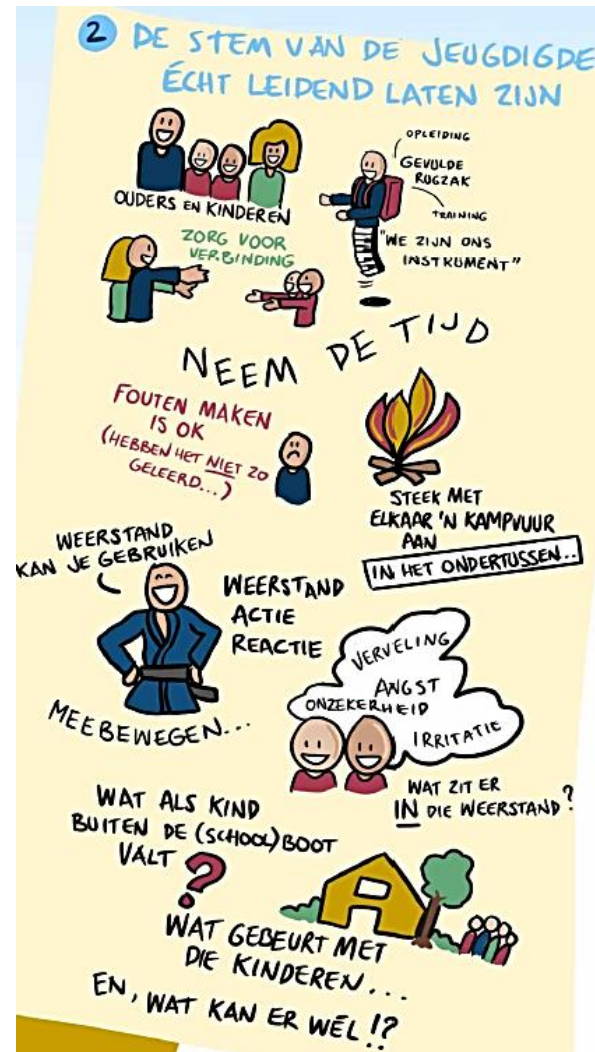 2 DE STEM VAN DE JEUGDIGDE
ÉCHT LEIDEND LATEN ZIJN
OUDERS EN KINDEREN
OPLEIDING
GEVULDE
RUGZAK
TRAINING
"WE ZIJN ONS
INSTRUMENT"
ZORG VOOR
VERBINDING
NEEM DE TIJD
FOUTEN MAKEN
IS OK
(HEBBEN HET NIET ZO
GELEERD...)
STEEK MET
ELKAAR 'N KAMPVUUR
AAN
IN HET ONDERTUSSEN...
WEERSTAND
KAN JE GEBRUIKEN
WEERSTAND
ACTIE
REACTIE
MEEBEWEGEN...
VERVELING
ANGST
ONZEKERHEID
IRRITATIE
WAT ZIT ER
IN DIE WEERSTAND?
WAT ALS KIND
BUITEN DE (SCHOOL)BOOT
VALT ?
WAT GEBEURT MET
DIE KINDEREN...
EN, WAT KAN ER WÉL!?